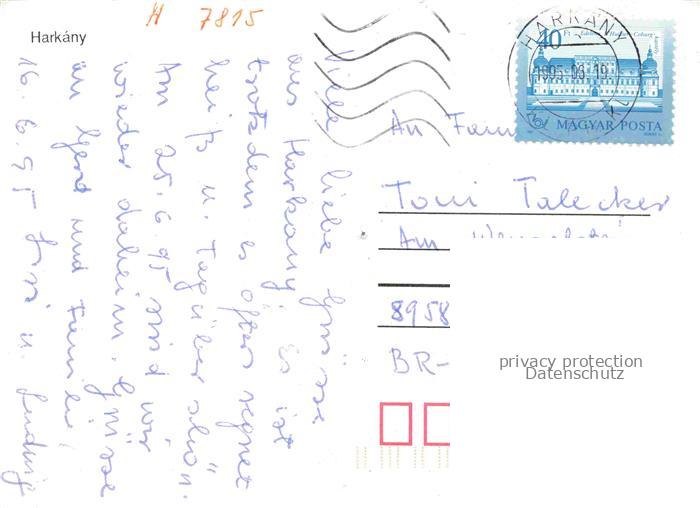 H 7815
Harkány
Viele liebe Grüsse
aus Harkany. Es ist
trotzdem es öfters regnet
heiß u. Tagüber schön.
Am 25.6.95 sind wir
wieder daheim. Grüsse
an Gerd und Famili
16.6.95 u. Ludwig
HARKÁNY
1995.06.19
40 Ft
MAGYAR POSTA
An Fam
Toni Talecker
Am
8958
BR-
privacy protection
Datenschutz